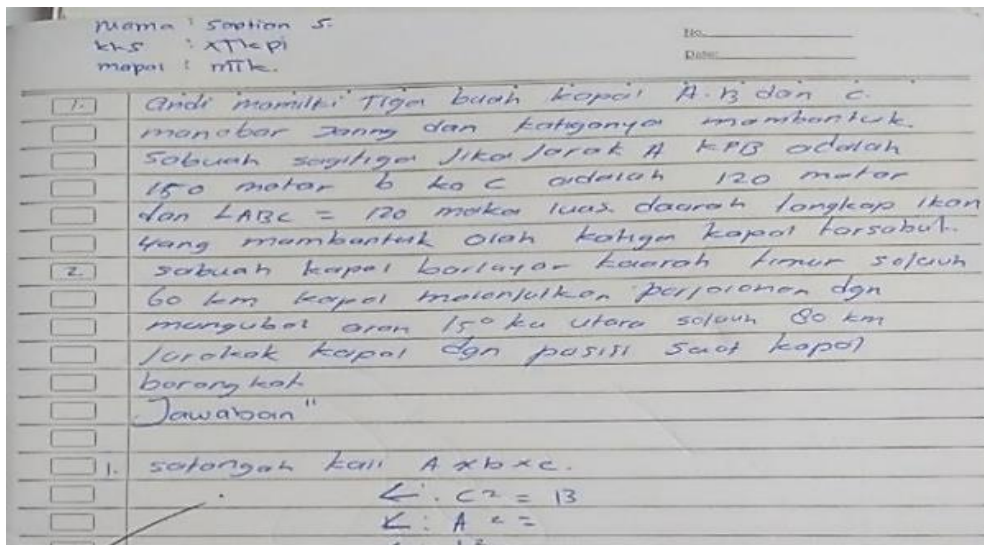 Nama : Soption S.
kls : XTkpi
mapel : mTk.
No.
Date:
1. andi memiliki Tiga buah kapal A.B dan c.
menebar Jaring dan ketiganya membentuk.
Sebuah segitiga Jika Jarak A kPB adalah
150 meter b ke C adalah 120 meter
dan ∠ABC = 120 maka luas. daerah tangkap ikan
yang membentuk oleh ketiga kapal tersebut.
2. sebuah kapal berlayar kearah timur sejauh
60 km kapal melanjutkan perjalanan dgn
mengubah arah 15° ke utara sejauh 80 km
Jarak kapal dgn posisi saat kapal
berangkat
Jawaban "
1. setengah kali A x b x c.
∠ : C2 = 13
∠ : A c =